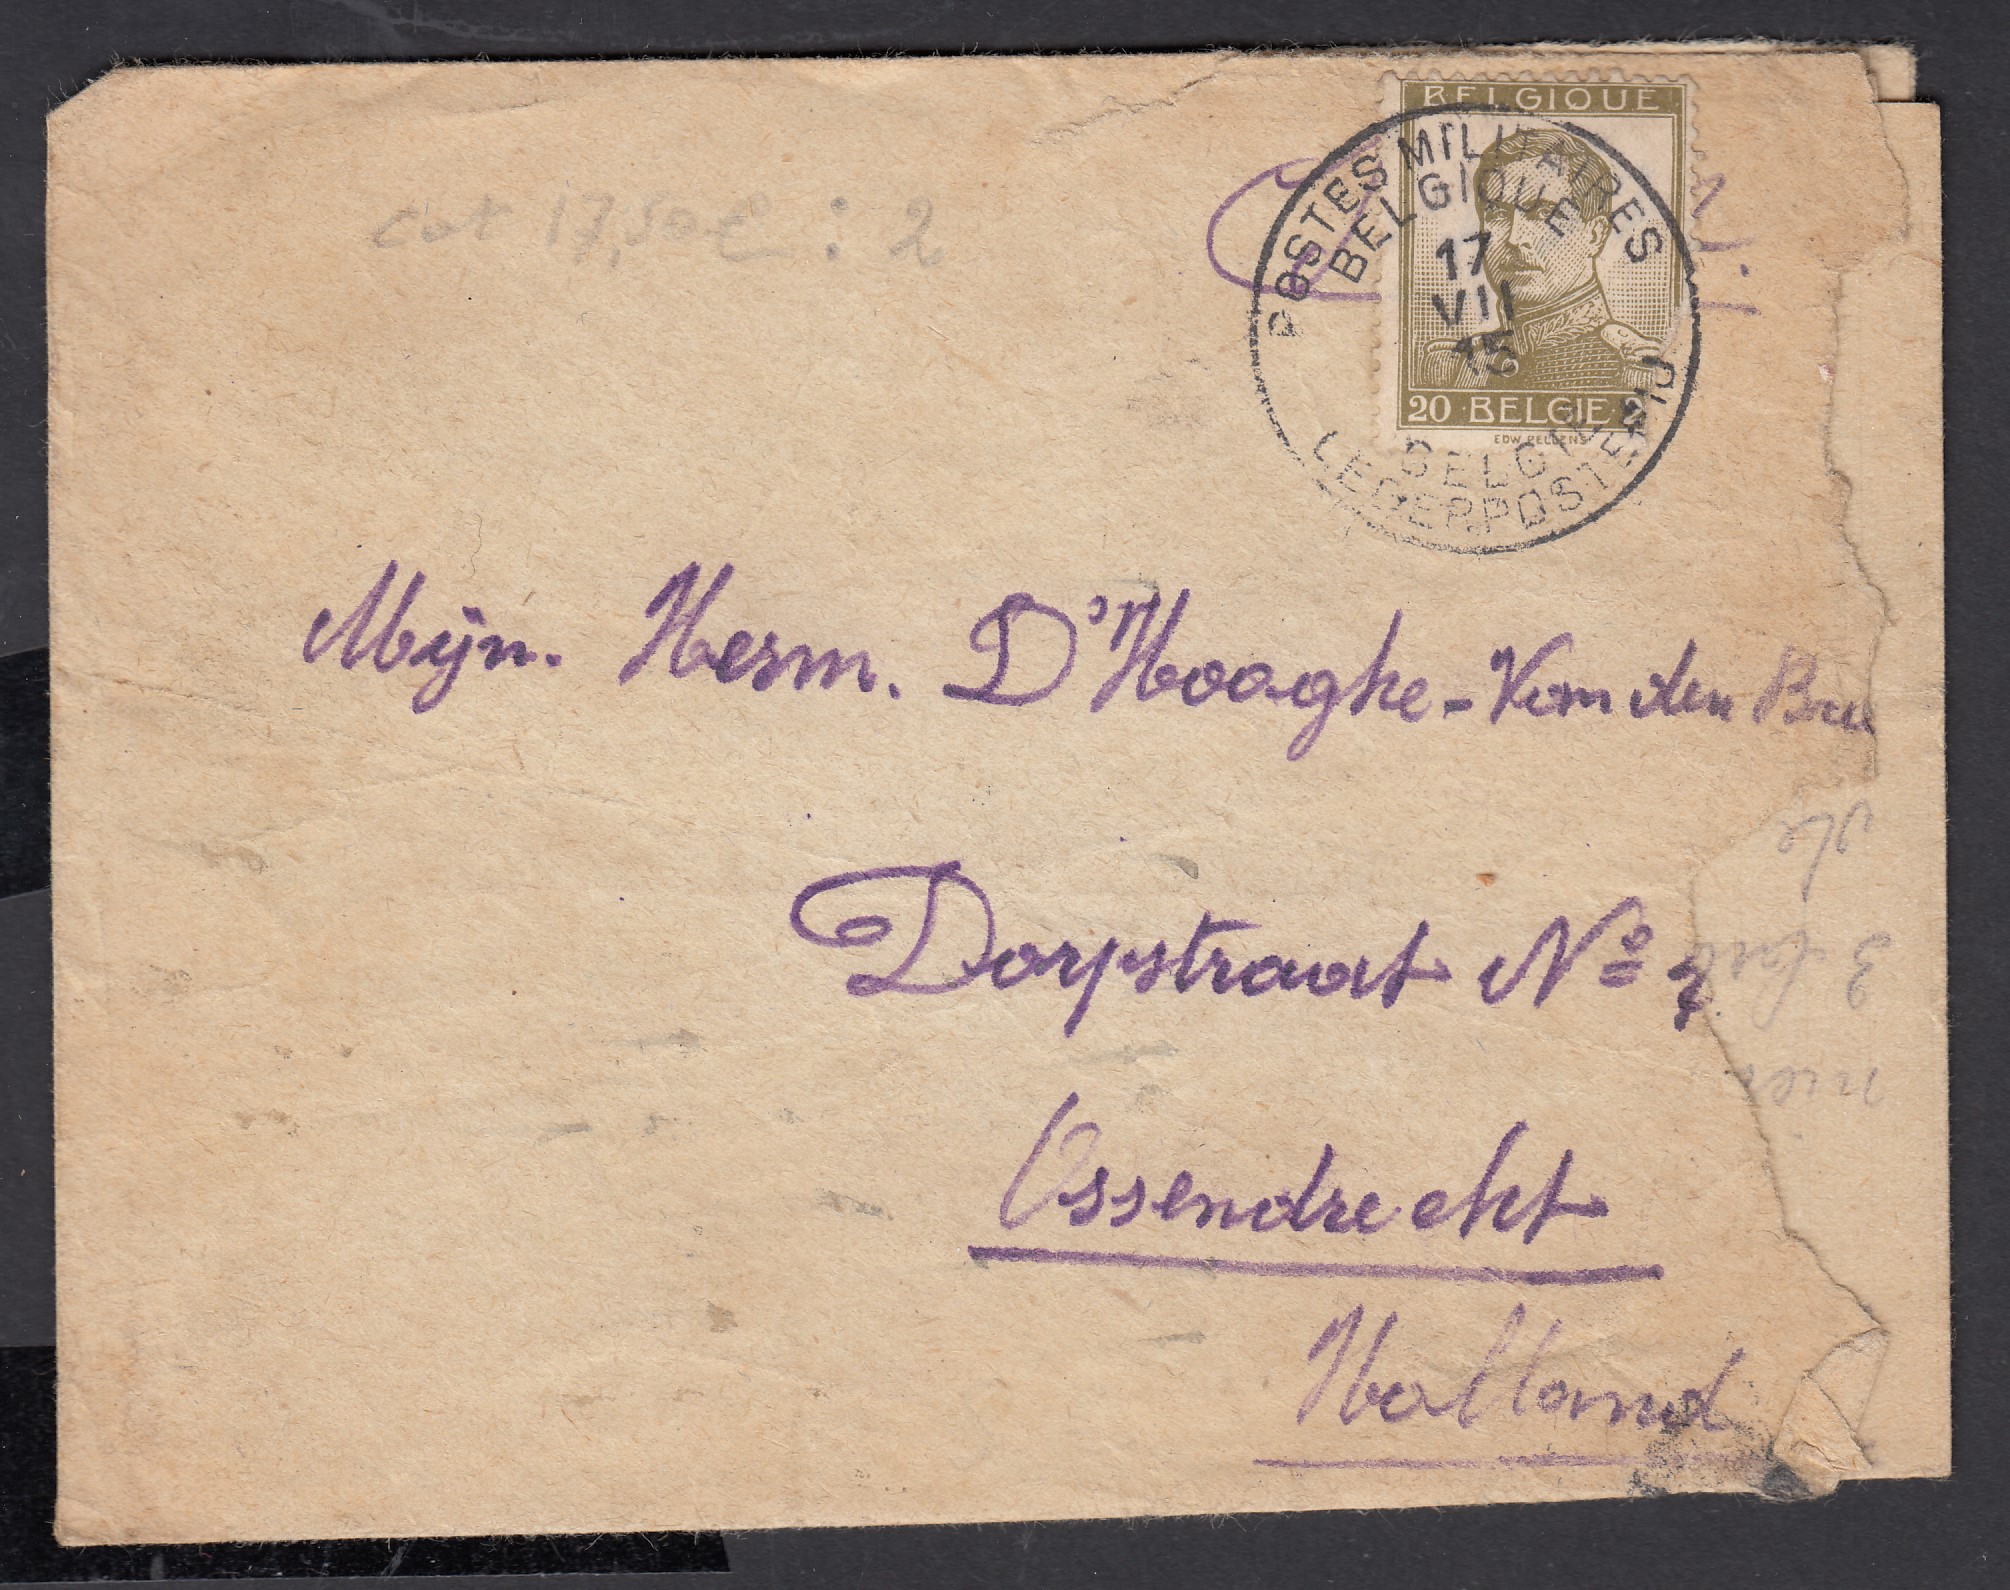 cot 17,50 € : 2
BELGIQUE
POSTES MILITAIRES
BELGIQUE
17
VII
15
20 BELGIE 2
EDW PELLENS
BELGIE
LEGERPOSTERIJ
Mijn. Herm. D'Hooghe - Van den Bru
Dorpstraat Nº
Ossendrecht
Holland